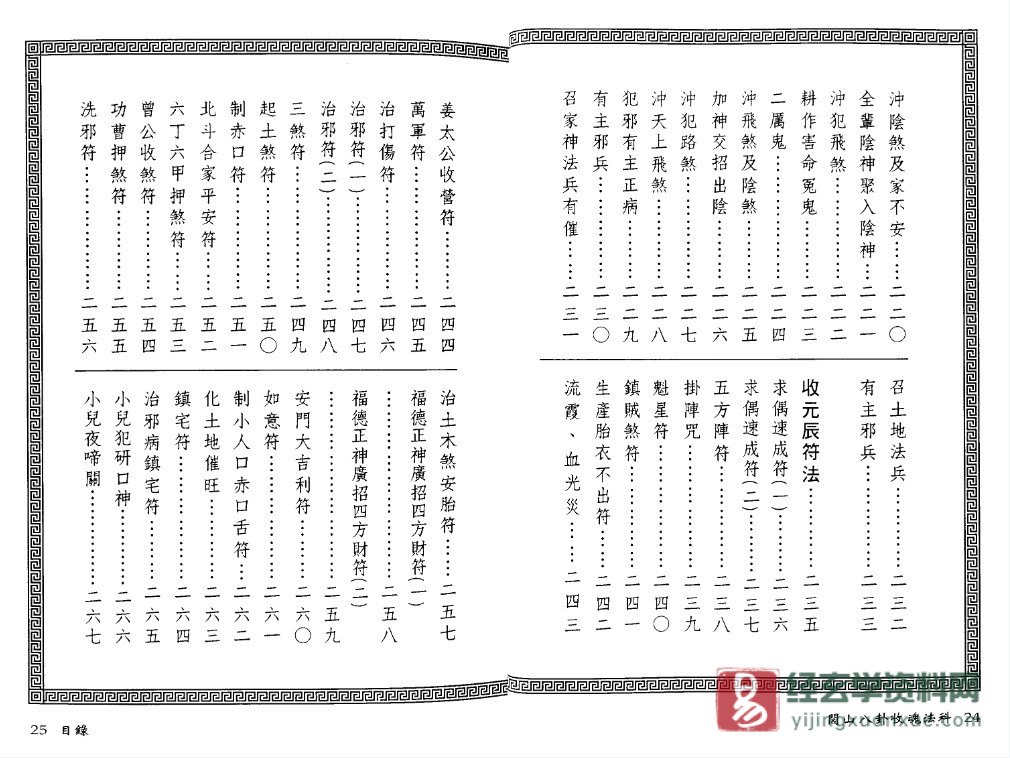 沖陰煞及家不安………二二〇
全輩陰神聚入陰神…二二一
沖犯飛煞………………二二二
耕作害命冤鬼…………二二三
二厲鬼…………………二二四
沖飛煞及陰煞…………二二五
加神交招出陰…………二二六
沖犯路煞………………二二七
沖天上飛煞……………二二八
犯邪有主正病…………二二九
有主邪兵………………二三〇
召家神法兵有催………二三一
召土地法兵……………二三二
有主邪兵………………二三三
收元辰符法……………二三五
求偶速成符(一)………二三六
求偶速成符(二)………二三七
五方陣符………………二三八
掛陣咒…………………二三九
魁星符…………………二四〇
鎮賊煞符………………二四一
生產胎衣不出符………二四二
流霞、血光災…………二四三
閭山八卦收魂法科 24
姜太公收營符…………二四四
萬軍符…………………二四五
治打傷符………………二四六
治邪符(一)……………二四七
治邪符(二)……………二四八
三煞符…………………二四九
起土煞符………………二五〇
制赤口符………………二五一
北斗合家平安符………二五二
六丁六甲押煞符………二五三
曾公收煞符……………二五四
功曹押煞符……………二五五
洗邪符…………………二五六
治土木煞安胎符………二五七
福德正神廣招四方財符(一)
……………………………二五八
福德正神廣招四方財符(二)
……………………………二五九
安門大吉利符…………二六〇
如意符…………………二六一
制小人口赤口舌符……二六二
化土地催旺……………二六三
鎮宅符…………………二六四
治邪病鎮宅符…………二六五
小兒犯研口神…………二六六
小兒夜啼關……………二六七
25 目錄
易
经玄学资料网
yijingxuanxue.com